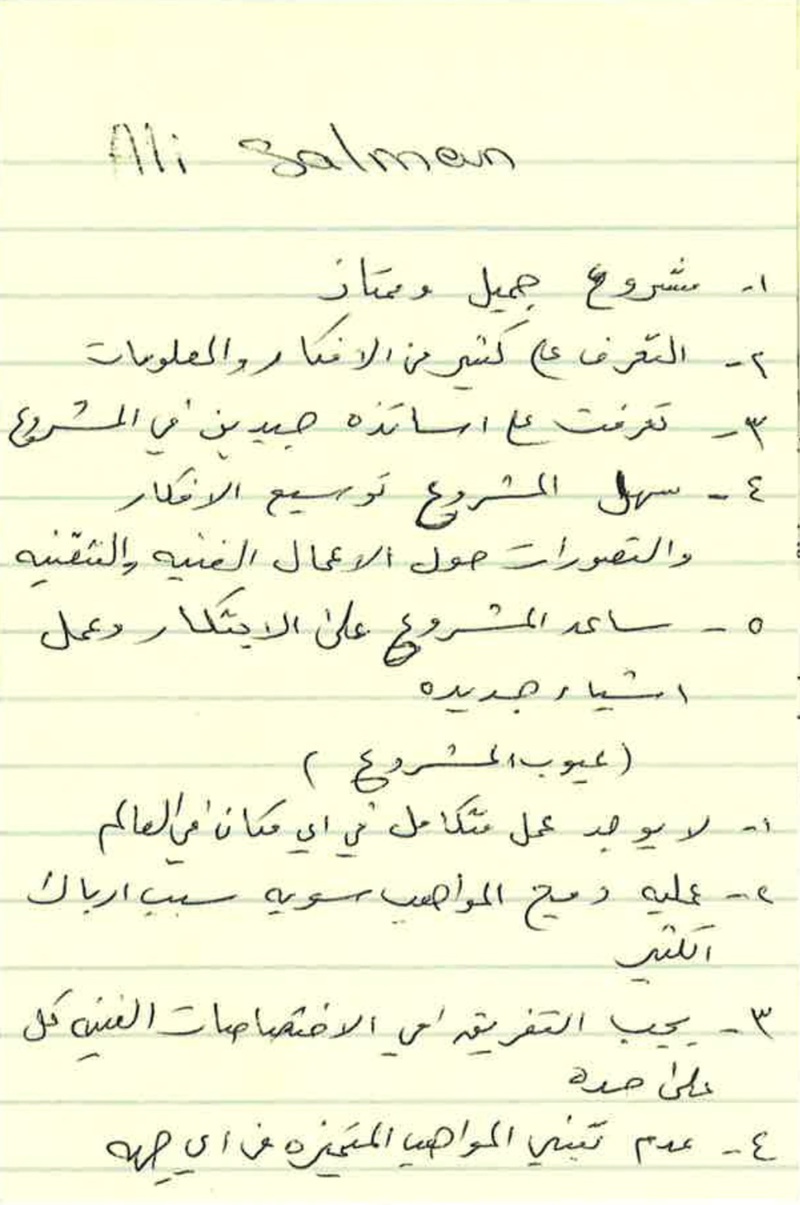 Ali Salman
١- مشروع جميل وممتاز
٢- التعرف على كثير من الافكار والمعلومات
٣- تعرفت على اساتذه جيدين في المشروع
٤- سهل المشروع توسيع الافكار
والتصورات حول الاعمال الفنيه والتقنيه
٥- ساعد المشروع على الابتكار وعمل
اشياء جديده
(عيوب المشروع)
١- لا يوجد عمل متكامل في اي مكان في العالم
٢- عمليه دمج المواهب سويه سبب ارباك
الكثير
٣- يجب التفريق في الاختصاصات الفنيه كل
على حده
٤- عدم تبني المواهب المتميزه من اي جهه